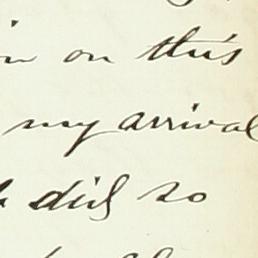 on this
my arrival
did so